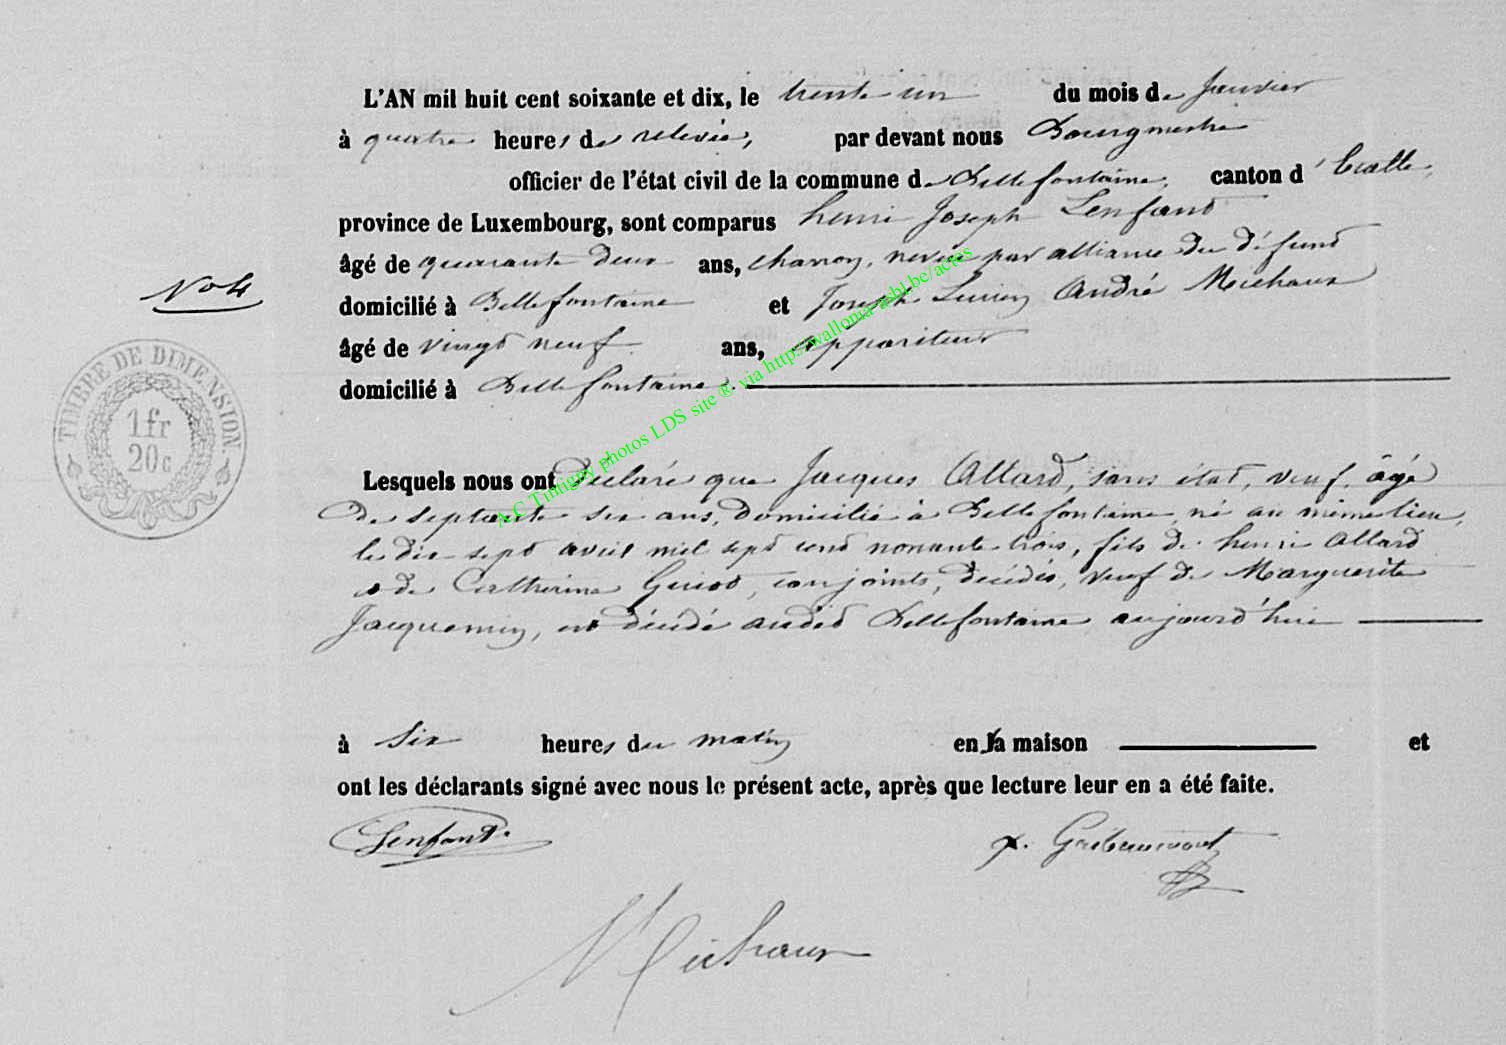 L'AN mil huit cent soixante et dix, le trente un du mois de Janvier
à quatre heures de relevée, par devant nous Bourgmestre
officier de l'état civil de la commune de Bellefontaine, canton d'Etalle,
province de Luxembourg, sont comparus henri Joseph Lenfant
âgé de quarante deux ans, charron, neveu par alliance du défunt
N° 4
domicilié à Bellefontaine et Joseph Lucien André Michaux
âgé de vingt neuf ans, appariteur
domicilié à Bellefontaine.
TIMBRE DE DIMENSION.
1 fr
20 c
A.C Tintigny photos LDS site ® via http://wallonia-asbl.be/actes
Lesquels nous ont déclaré que Jacques Allard, sans état, veuf, âgé
de septante six ans, domicilié à Bellefontaine, né au même lieu,
le dix-sept avril mil sept cent nonante trois, fils de henri Allard
& de Catherine conjoints, décédés, veuf de Marguerite
Jacquemin, est décédé audit Bellefontaine aujourd'hui
à six heures du matin en sa maison et
ont les déclarants signé avec nous le présent acte, après que lecture leur en a été faite.
Lenfant. Gribaumont
Michaux